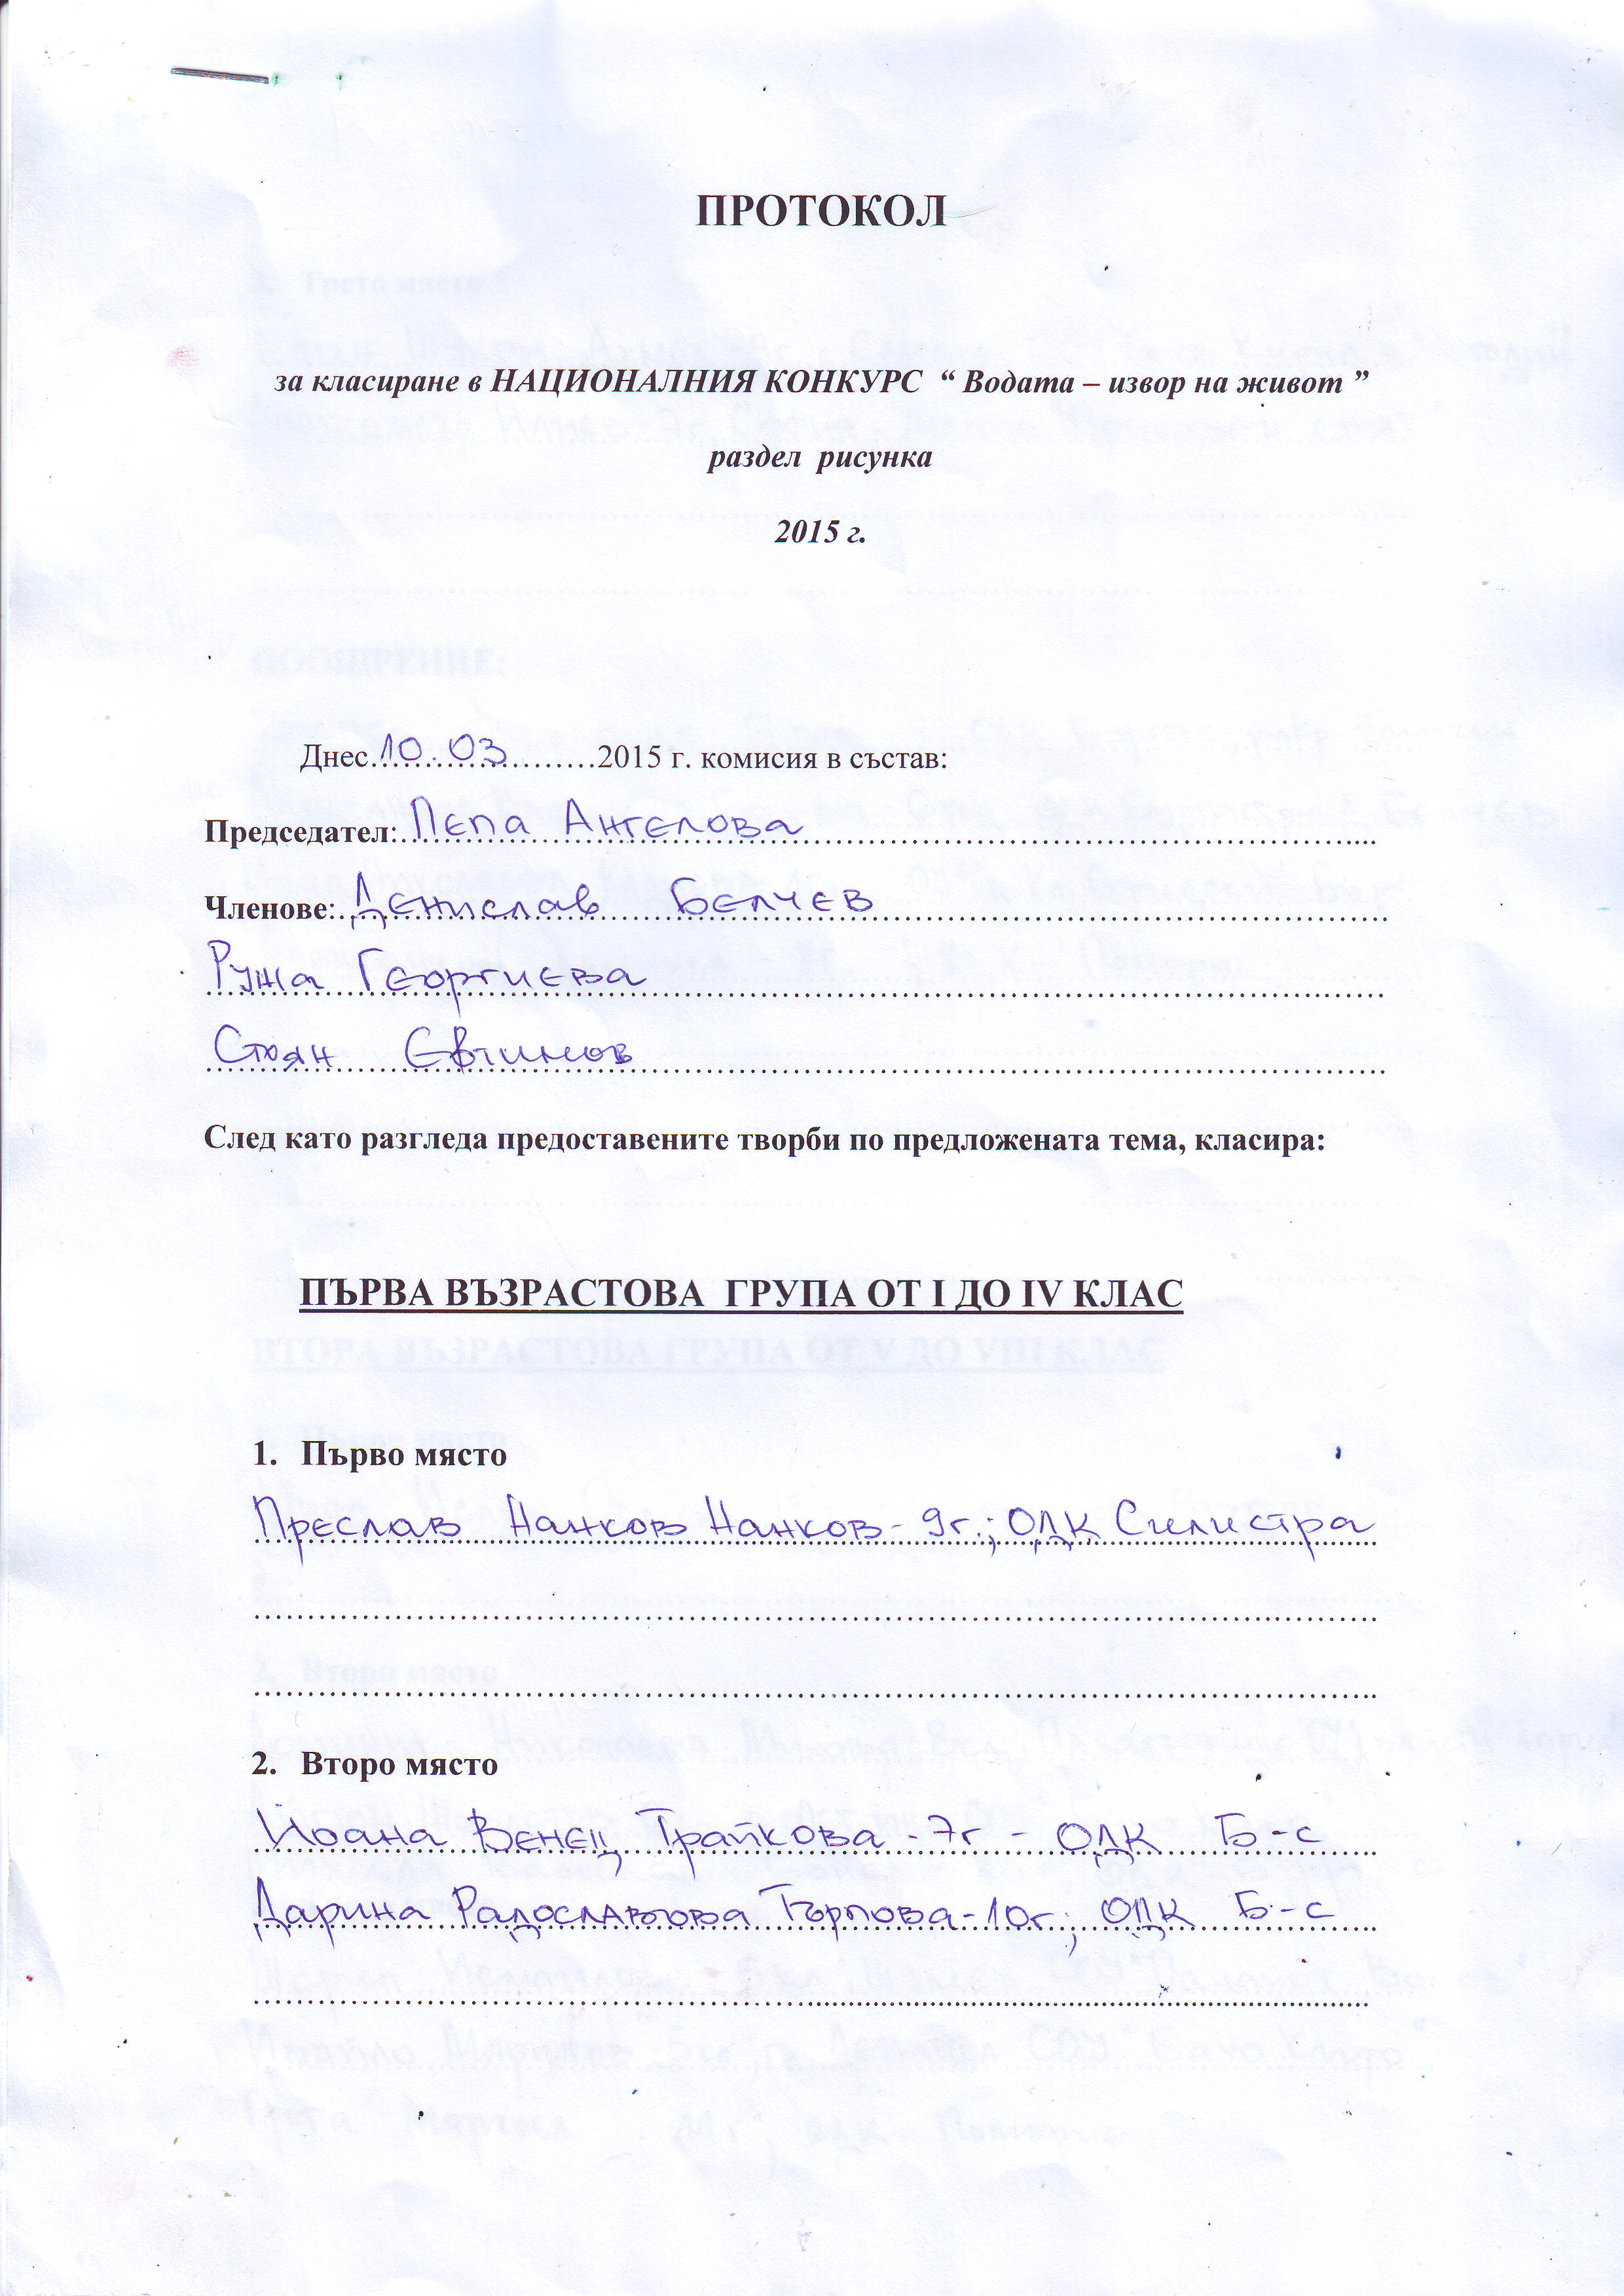 ПРОТОКОЛ
за класиране в НАЦИОНАЛНИЯ КОНКУРС “ Водата – извор на живот ”
раздел рисунка
2015 г.
Днес 10.03 2015 г. комисия в състав:
Председател: Пепа Ангелова
Членове: Денислав Белчев
Ружа Георгиева
Стоян Евтимов
След като разгледа предоставените творби по предложената тема, класира:
ПЪРВА ВЪЗРАСТОВА ГРУПА ОТ I ДО IV КЛАС
1. Първо място
Преслав Нанков Нанков - 9г.; ОДК Силистра
2. Второ място
Йоана Венец Трайкова - 7г - ОДК Б-с
Дарина Радославова Търпова - 10г; ОДК Б-с